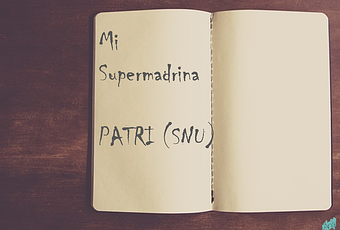 Mi
Supermadrina
PATRI (SNU)